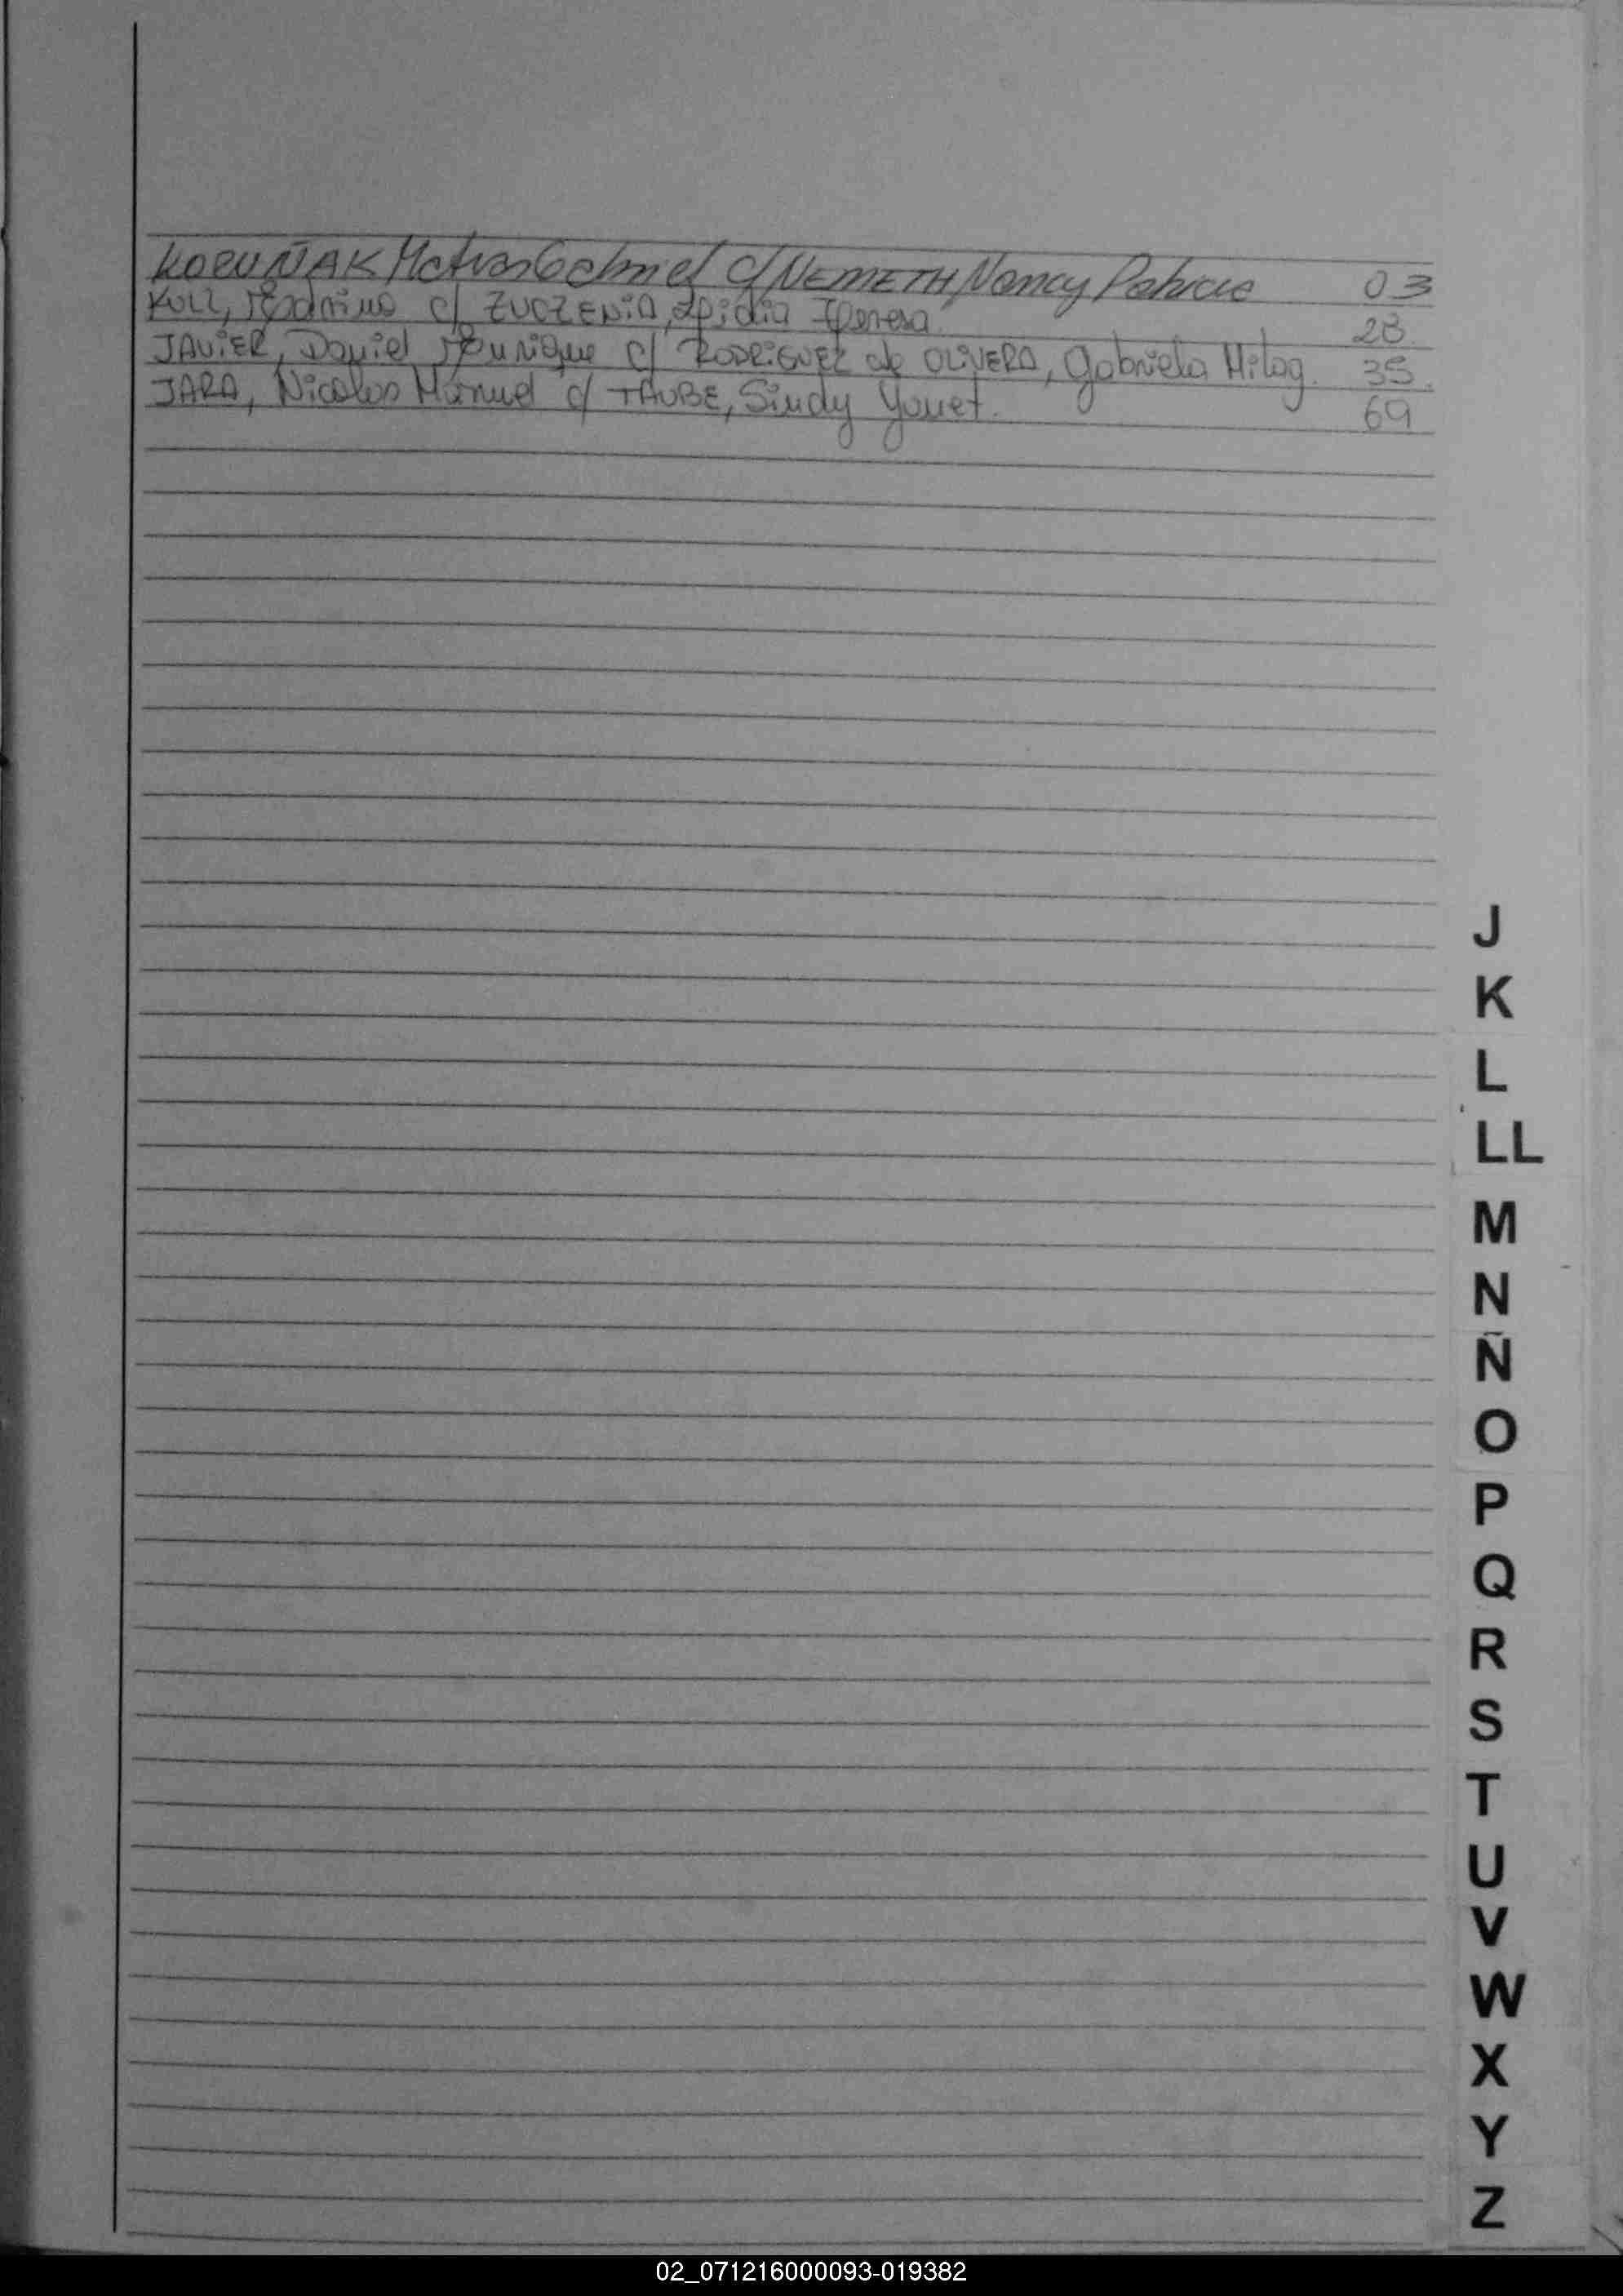 KORUÑAK Matias Gabriel c/ NEMETH, Nancy Patricia 03
KULL, c/ ZUCZENIA, Lidia Teresa 28
JAVIER, Daniel Enrique c/ RODRIGUEZ de OLIVERA, Gabriela Milag. 35.
JARA, Nicolas Manuel c/ TAUBE, Sindy Yanet. 69
J
K
L
LL
M
N
Ñ
O
P
Q
R
S
T
U
V
W
X
Y
Z
02_071216000093-019382